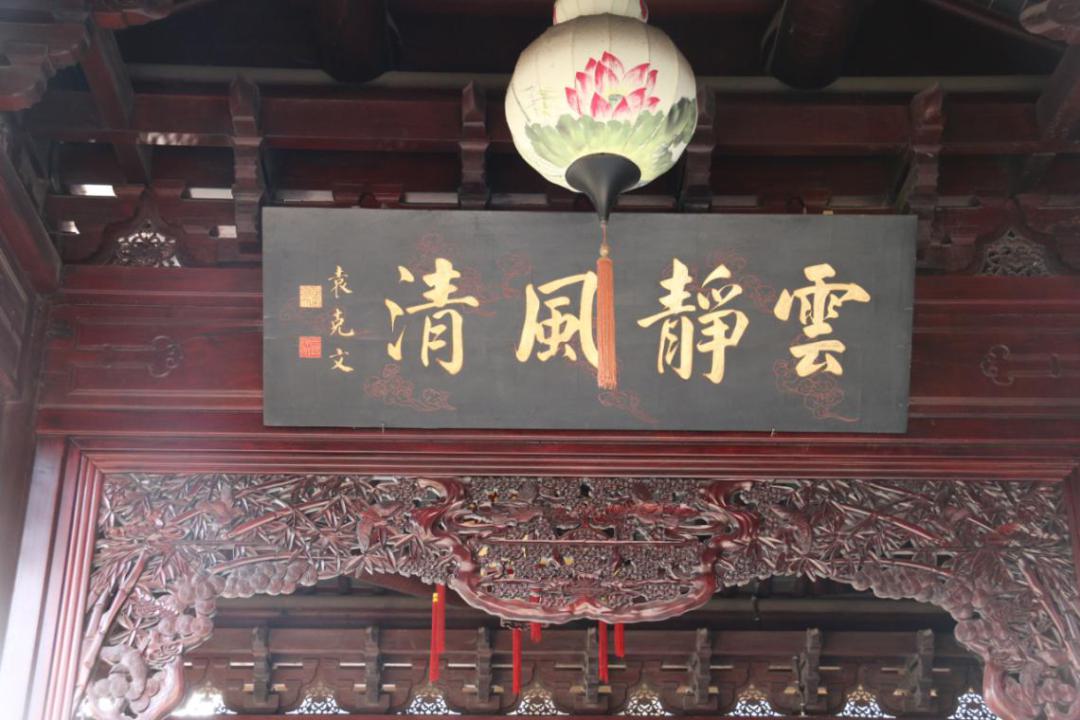 雲靜風清
袁克文